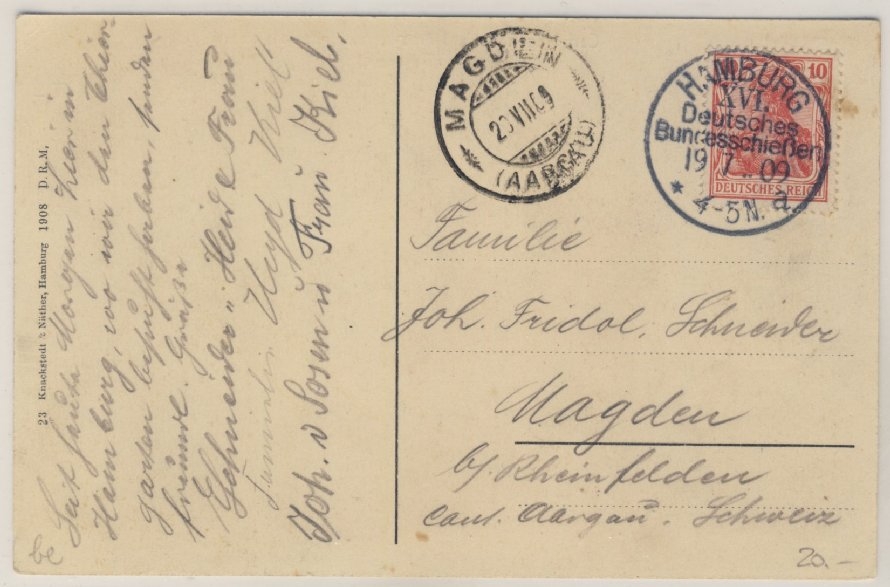 Seit heute Morgen hier in
Hamburg, wo wir den Thier-
garten besucht haben, senden
freundl. Grüße
Schneider u. Heide Frau
Familie Heyd Kiel
Joh. v Sosen u Frau Kiel.
23 Knackstedt & Näther, Hamburg 1908 D. R. M.
be
MAGDEN
20.VII.09
(AARGAU)
HAMBURG
XVI.
Deutsches
Bundesschießen
19 7 09
* 4-5N. a
10
DEUTSCHES REICH
Familie
Joh. Fridol. Schneider
Magden
b/ Rheinfelden
Cant. Aargau. Schweiz
20.-